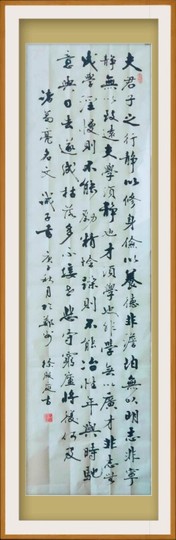 夫君子之行静以修身俭以養德非澹泊無以明志非寧
静無以致遠夫學須静也才須學也非學無以廣才非志無
成學淫慢則不能勵精險躁則不能冶性年與時馳
意與日去遂成枯落多不接世悲守窮廬將復何及
諸葛亮名文 誡子書 庚子秋月於鄭州